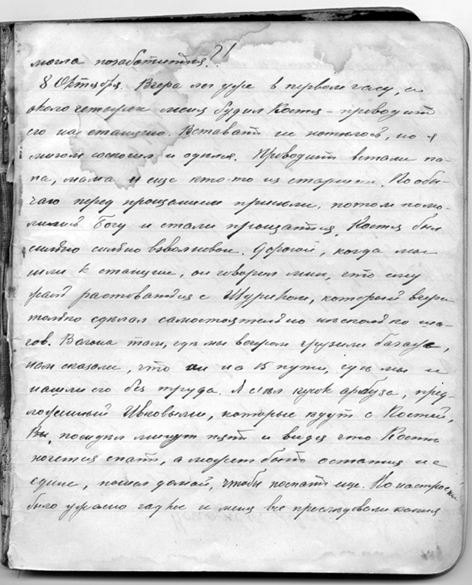 могла позаботиться.
21
8 Октября. Вчера лег уже в первом часу, а
около четырех меня будил Костя – проводить
его на станцию. Вставать не хотелось, но я
мигом соскочил и оделся. Проводить встали па-
па, мама и еще кто-то из старших. По обы-
чаю перед прощанием присели, потом помо-
лились Богу и стали прощаться. Костя был
сильно сильно взволнован. Дорогой, когда мы
шли к станции, он говорил мне, что ему
жаль расставаться с Шуриком, который вчера
только сделал самостоятельно несколько ша-
гов. Вагона там, где мы вечером грузили багаж,
нам сказали, что он на 15 пути, где мы и
нашли его без труда. Я съел кусок арбуза, пред-
ложенный Ивковыми, которые едут с Костей,
посидел минут пять и видя что Косте
хочется спать, а может быть остаться не
едине, пошел домой, чтобы поспать еще. Но настрое
было ужасно гадкое и меня все преследовали